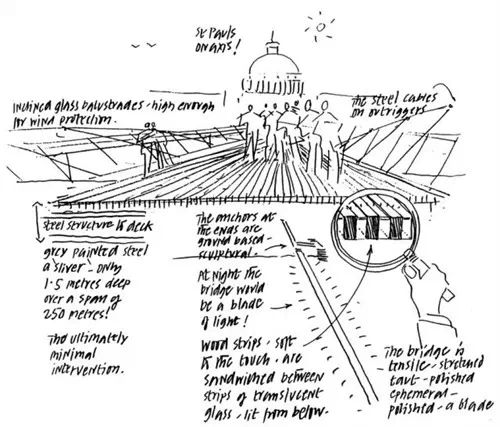 St Pauls
on axis!
Inclined glass balustrades - high enough
for wind protection.
The steel cables
on outriggers
steel structure & deck
grey painted steel
a sliver - only
1.5 metres deep
over a span of
250 metres!
The ultimately
minimal
intervention.
The anchors at
the ends are
ground based
sculptural.
At night the
bridge would
be a blade
of light!
Wood strips - soft
to the touch - are
sandwiched between
strips of translucent
glass - lit from below.
The bridge is
tensile - stretched
taut - polished
ephemeral -
polished - a blade